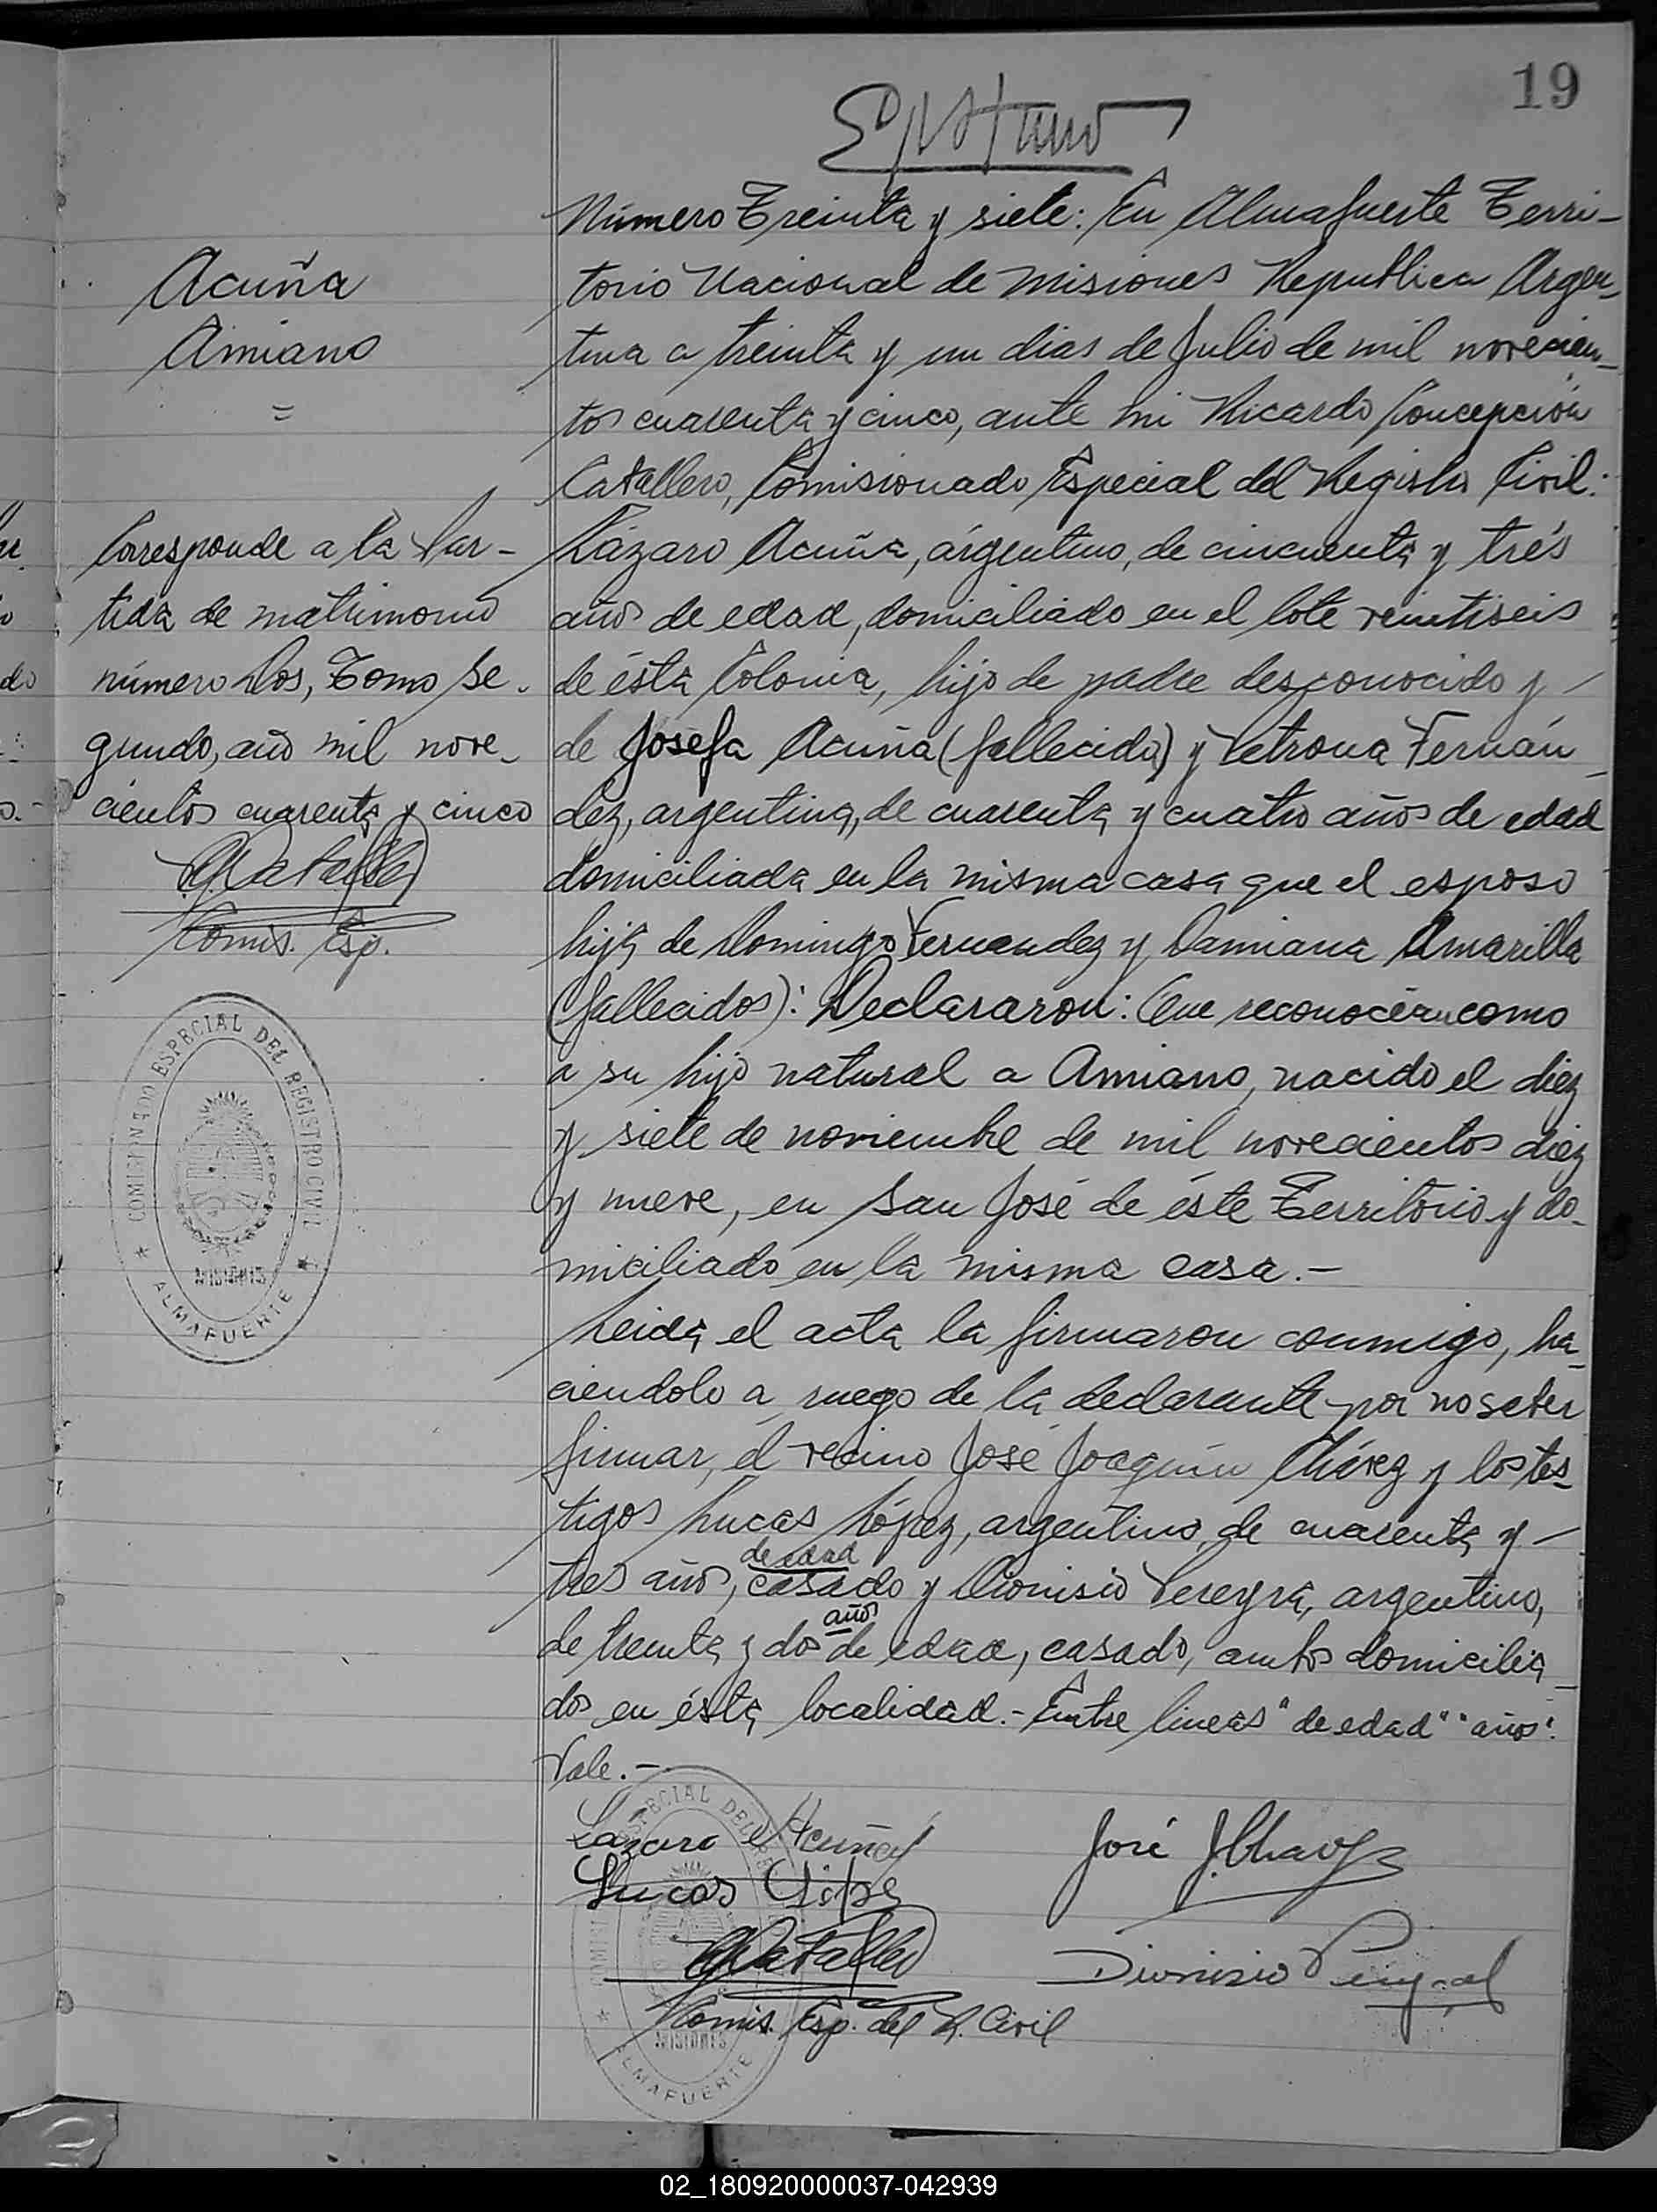 19
Número Treinta y siete: En Almafuerte Terri-
torio Nacional de Misiones Republica Argen-
tina a treinta y un dias de Julio de mil novecien-
tos cuarenta y cinco, ante mi Ricardo Concepción
Caballero, Comisionado Especial del Registro Civil:
Lázaro Acuña, árgentino, de cincuenta y trés
años de edad, domiciliado en el lote veintiseis
de ésta Colonia, hijo de padre desconocido y
de Josefa Acuña (fallecida) y Petrona Fernán
dez, argentina, de cuarenta y cuatro años de edad
domiciliada en la misma casa que el esposo
hija de Domingo Fernandez y Damiana Amarilla
(fallecidos): Declararon: Que reconocen como
a su hijo natural a Amiano, nacido el diez
y siete de noviembre de mil novecientos diez
y nueve, en San José de éste Territorio y do-
miciliado en la misma casa.-
Leida el acta la firmaron conmigo, ha-
ciendolo a ruego de la declarante por no saber
firmar, el vecino José Joaquín Chávez y los tes-
tigos Lucas López, argentino, de cuarenta y -
de edad
tres años, casado y Dionisio Pereyra, argentino,
años
de treinta y dos de edad, casado, ambos domicilia-
dos en ésta localidad.- Entre lineas "de edad" "años".
Vale.-
Lázaro Acuña
José J. Chavez
Lucas López
Dionisio
Comis. Esp. del R. Civil
Acuña
Amiano
=
Corresponde a la Par-
tida de matrimonio
número Dos, Tomo Se-
gundo, año mil nove-
cientos cuarenta y cinco
Comis. Esp.
COMISIONADO ESPECIAL DEL REGISTRO CIVIL
MISIONES
★ ALMAFUERTE ★
ECIAL DEL RE
MISIONES
ALMAFUERTE
do
02_180920000037-042939